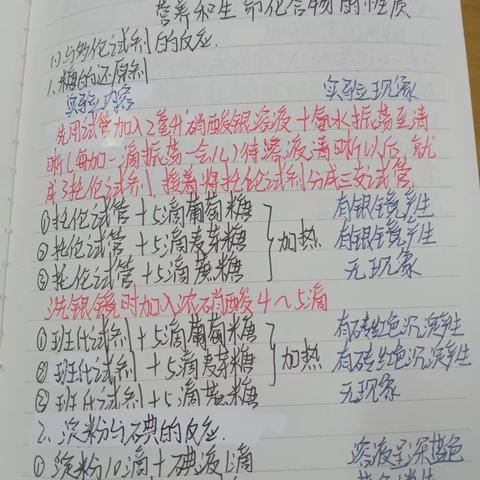 营养和生命化合物的性质
(1).与多伦试剂的反应.
1.糖的还原剂
实验内容 实验现象
先用试管加入2毫升硝酸银溶液+氨水振荡至清
晰(每加一滴振荡一会儿)待溶液清晰以后,就
成了托伦试剂,接着将托伦试剂分成三支试管
①托伦试管+5滴葡萄糖 有银镜产生
②托伦试管+5滴麦芽糖 加热 有银镜产生
③托伦试管+5滴蔗糖 无现象
洗银镜时加入浓硝酸4~5滴
①班氏试剂+5滴葡萄糖 有砖红色沉淀产生
②班氏试剂+5滴麦芽糖 加热 有砖红色沉淀产生
③班氏试剂+5滴蔗糖 无现象
2.淀粉与碘的反应.
①淀粉10滴+碘液1滴 溶液呈深蓝色